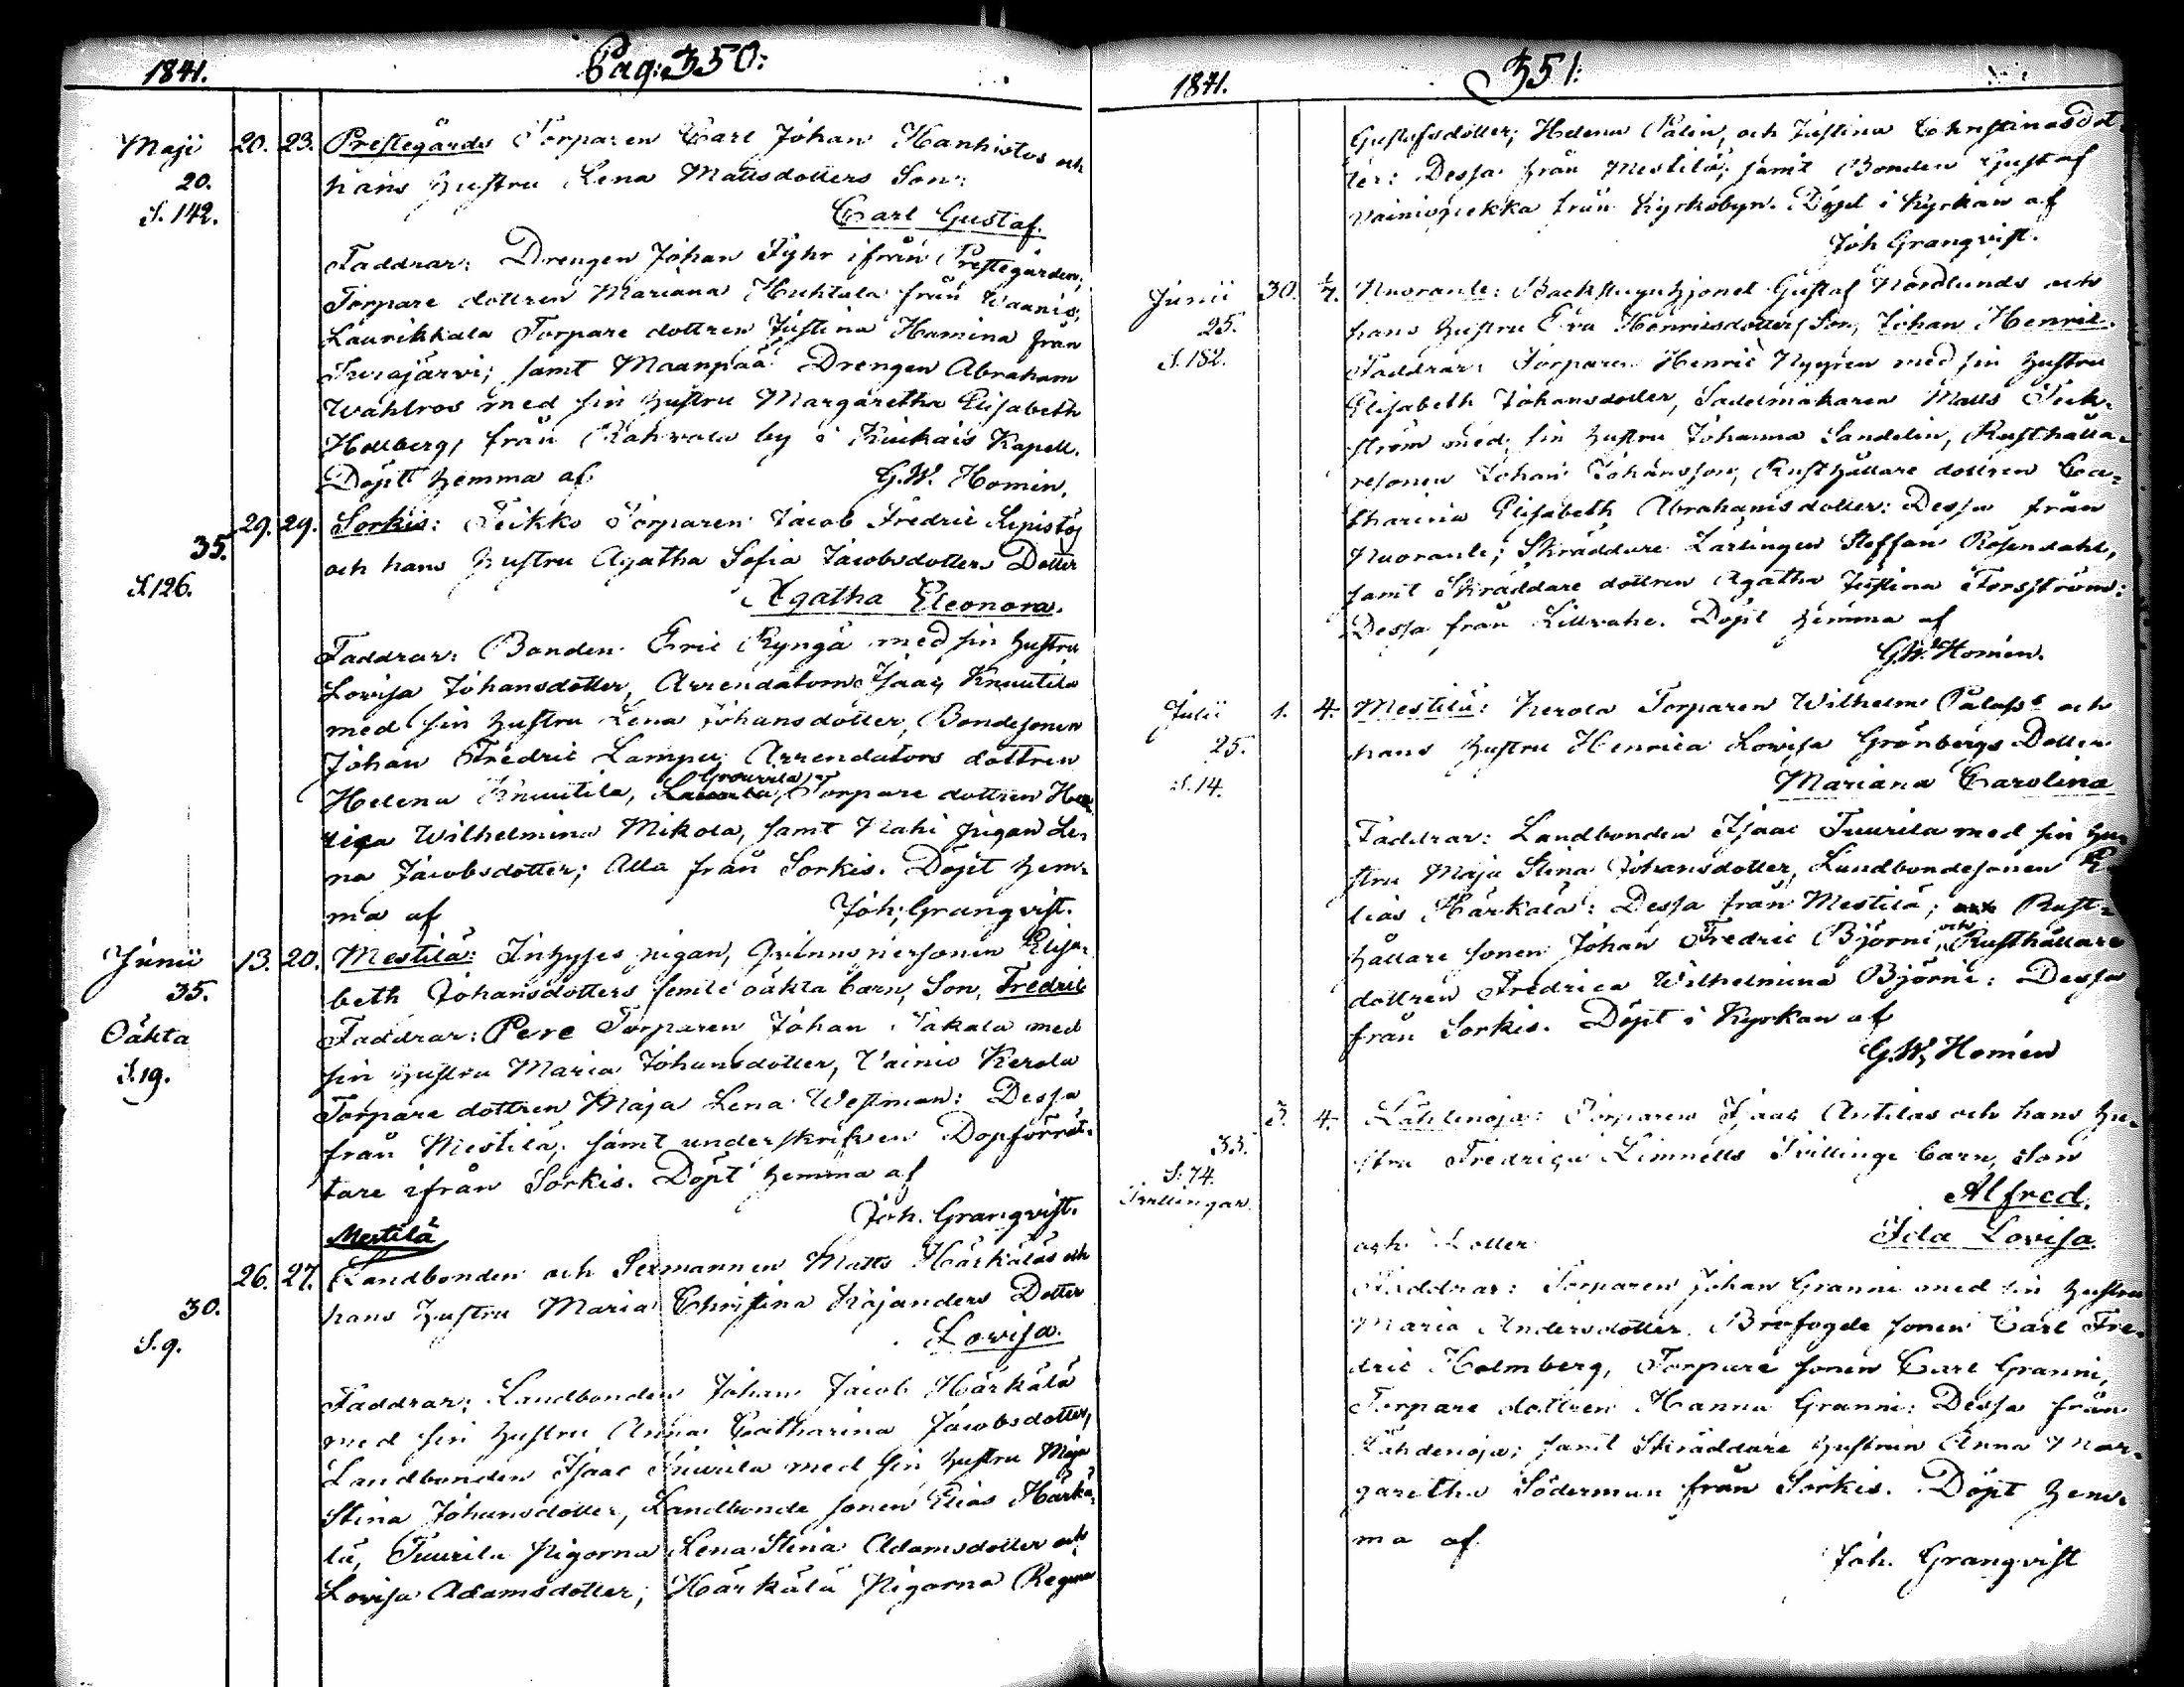 1841. Pag: 350:
Maji 20. 23. Prestegårds Torparen Carl Johan Hanhistos och
20. hans hustru Lena Mattsdotters Son:
S. 142. Carl Gustaf.
Faddrar: Drengen Johan Fyhr ifrån Prestegården,
Torpare dottren Mariana Huhtala från Vaanio,
Laurikkala Torpare dottren Justina Hamina från
Turajärvi; samt Maanpää Drengen Abraham
Wahlros med sin hustru Margaretha Elisabeth
Hellberg, från Rahvola by i Kiukais Kapell.
Döpt hemma af G.W. Homén.
29. 29. Sorkis: Teikko Torparen Jacob Fredric Lepistös
35. och hans hustru Agatha Sofia Jacobsdotters Dotter
S. 126. Agatha Eleonora.
Faddrar: Bonden Eric Ryngä med sin hustru
Lovisa Johansdotter, Arrendatorn Isaac Knuutila
med sin hustru Lena Johansdotter, Bondesonen
Johan Fredric Lampu, Arrendators dottren
Helena Knuutila, Torpare dottren Hen
rica Wilhelmina Mikola, samt Nahi pigan Le-
na Jacobsdotter; Alla från Sorkis. Döpt hem-
ma af Joh. Granqvist.
Junii 13. 20. Mestilä: Inhyses pigan, Qvinnspersonen Elisa-
35. beth Johansdotters oäkta barn, Son, Fredric
Oäkta Faddrar: Pere Torparen Johan Takala med
S. 19. sin hustru Maria Johansdotter, Vainio Kerola
Torpare dottren Maja Lena Westman: Dessa
från Mestilä; samt underskrifven Dopförrät-
tare ifrån Sorkis. Döpt hemma af
Joh. Granqvist.
Mestilä
26. 27. Landbonden och Sexmannen Matts Härkäläs och
30. hans hustru Maria Christina Kojanders Dotter
S. 9. Lovisa.
Faddrar: Landbonden Johan Jacob Härkälä
med sin hustru Anna Catharina Jacobsdotter,
Landbonden Isaac Tuurila med sin hustru Maja
Stina Johansdotter, Landbonde sonen Elias Härkä-
lä, Tuurila Pigorna Lena Stina Adamsdotter och
Lovisa Adamsdotter; Härkälä Pigorna Regina
1841. 351:
Gustafsdotter, Helena Palin, och Justina Christinasdot-
ter: Dessa från Mestilä; samt Bonden Gustaf
Vainiopiekka från Kyrkobyn. Döpt i Kyrkan af
Joh Granqvist.
Junii 30. Nuoranle: Backstuguhjonet Gustaf Nordlunds och
25. hans hustru Eva Henricsdotters Son, Johan Henric.
S. 182. Faddrar: Torparen Henric Nygren med sin hustru
Elisabeth Johansdotter, Sadelmakaren Matts Teck-
ström med sin hustru Johanna Sandelin, Rusthålla-
resonen Johan Johansson, Rusthållare dottren Ca-
tharina Elisabeth Abrahamsdotter: Dessa från
Nuoranle; Skräddare Lärlingen Steffan Rosendahl,
samt Skräddare dottren Agatha Justina Forsström:
Dessa från Lillvahe. Döpt hemma af
G.W. Homén.
Julii 1. 4. Mestilä: Kerola Torparen Wilhelm och
25. hans hustru Henrica Lovisa Grönbergs Dotter
S. 14. Mariana Carolina
Faddrar: Landbonden Isaac Tuurila med sin hu-
stru Maja Stina Johansdotter, Landbondesonen E
lias Härkälä: Dessa från Mestilä; Rust-
hållare sonen Johan Fredric Björni, och Rusthållare
dottren Fredrica Wilhelmina Björni: Dessa
från Sorkis. Döpt i Kyrkan af
G.W. Homén
3. 4. Lähtenoja: Torparen Isaac Antilas och hans hu-
33. stru Fredrica Limnells Tvillinge barn, Son
S. 74. Alfred.
Tvillingar.
och Dotter Ida Lovisa.
Faddrar: Torparen Johan Granni med sin hustru
Maria Andersdotter, Brofogde sonen Carl Fre-
dric Holmberg, Torpare sonen Carl Granni,
Torpare dottren Hanna Granni: Dessa från
Lähdenoja; samt Skräddare hustrun Anna Mar-
garetha Söderman från Sorkis. Döpt hem-
ma af
Joh. Granqvist